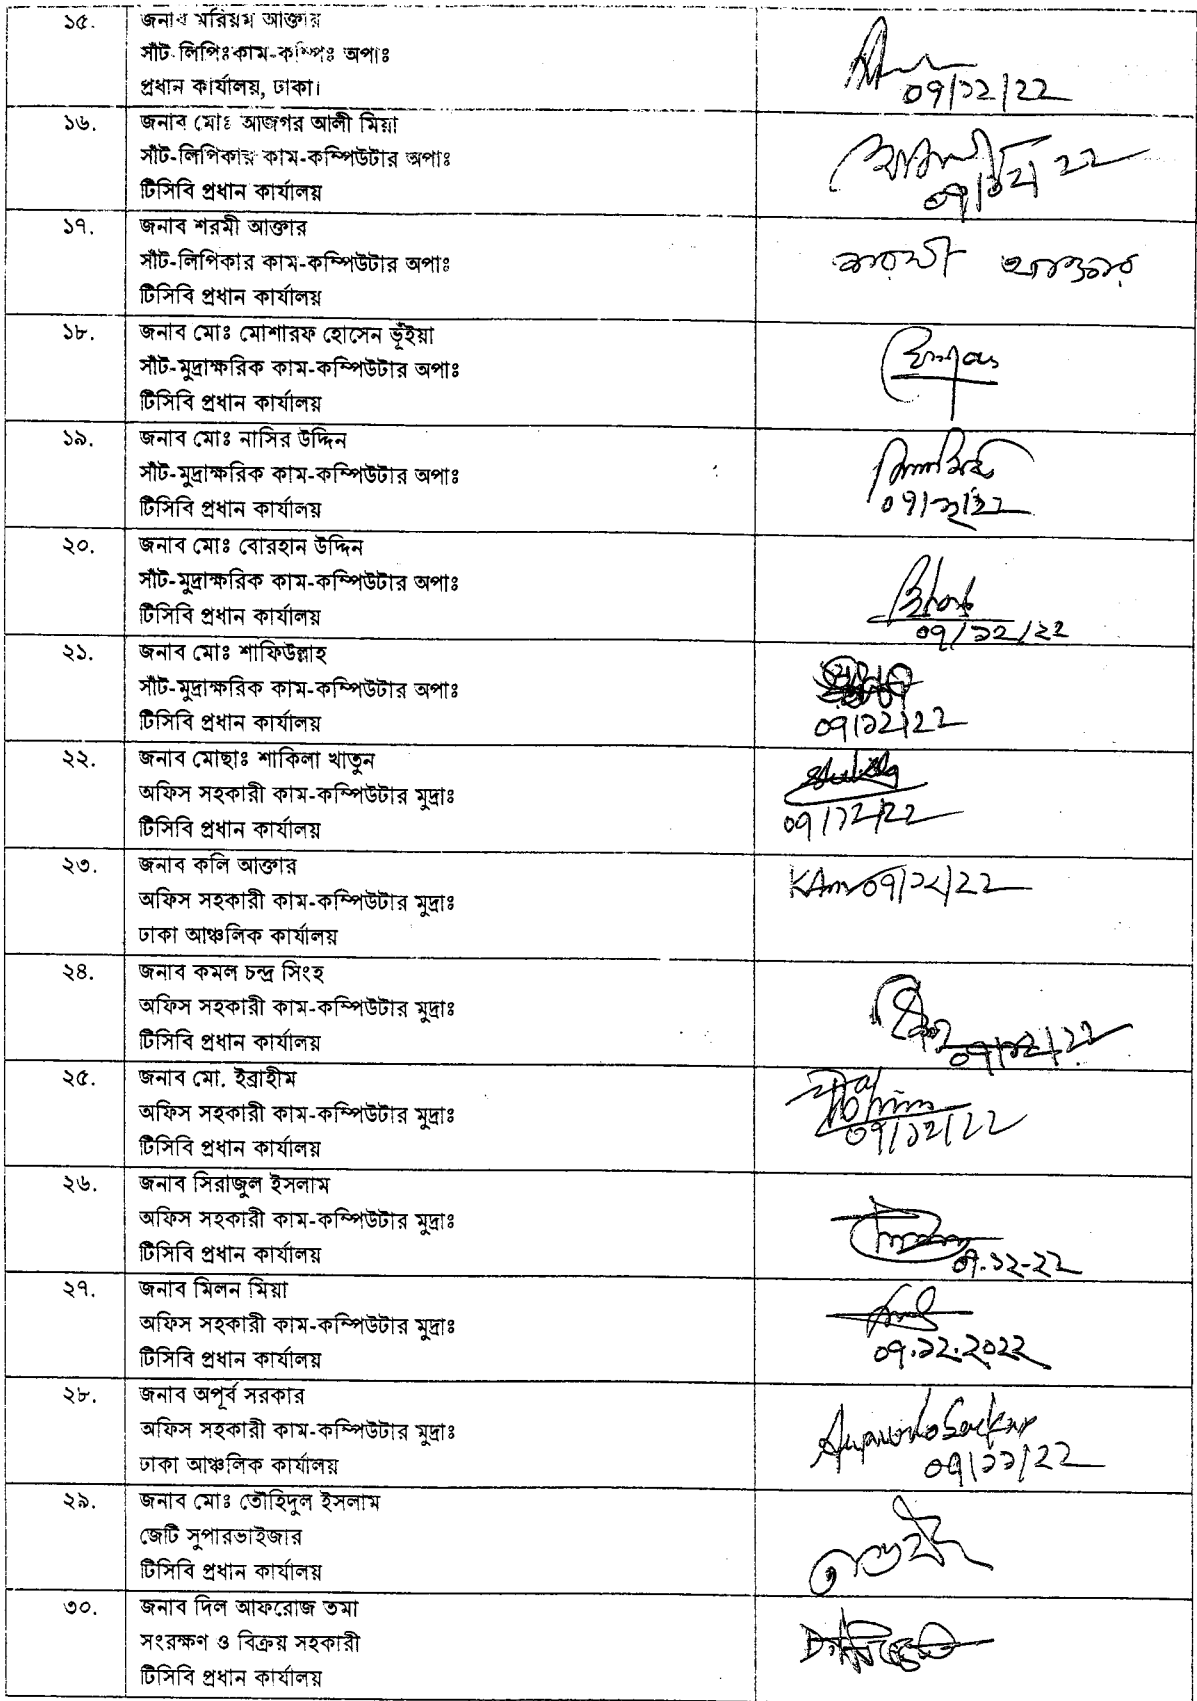 ১৫. জনাব মরিয়ম আক্তার
সাঁট-লিপিঃকাম-কম্পিঃ অপাঃ
প্রধান কার্যালয়, ঢাকা।
০৭/১২/২২
১৬. জনাব মোঃ আজগর আলী মিয়া
সাঁট-লিপিকার কাম-কম্পিউটার অপাঃ
টিসিবি প্রধান কার্যালয়
০৭/১২/২২
১৭. জনাব শরমী আক্তার
সাঁট-লিপিকার কাম-কম্পিউটার অপাঃ
টিসিবি প্রধান কার্যালয়
শরমী আক্তার
১৮. জনাব মোঃ মোশারফ হোসেন ভূঁইয়া
সাঁট-মুদ্রাক্ষরিক কাম-কম্পিউটার অপাঃ
টিসিবি প্রধান কার্যালয়
১৯. জনাব মোঃ নাসির উদ্দিন
সাঁট-মুদ্রাক্ষরিক কাম-কম্পিউটার অপাঃ
টিসিবি প্রধান কার্যালয়
০৭/১২/২২
২০. জনাব মোঃ বোরহান উদ্দিন
সাঁট-মুদ্রাক্ষরিক কাম-কম্পিউটার অপাঃ
টিসিবি প্রধান কার্যালয়
০৭/১২/২২
২১. জনাব মোঃ শাফিউল্লাহ
সাঁট-মুদ্রাক্ষরিক কাম-কম্পিউটার অপাঃ
টিসিবি প্রধান কার্যালয়
০৭/১২/২২
২২. জনাব মোছাঃ শাকিলা খাতুন
অফিস সহকারী কাম-কম্পিউটার মুদ্রাঃ
টিসিবি প্রধান কার্যালয়
০৭/১২/২২
২৩. জনাব কলি আক্তার
অফিস সহকারী কাম-কম্পিউটার মুদ্রাঃ
ঢাকা আঞ্চলিক কার্যালয়
০৭/১২/২২
২৪. জনাব কমল চন্দ্র সিংহ
অফিস সহকারী কাম-কম্পিউটার মুদ্রাঃ
টিসিবি প্রধান কার্যালয়
০৭/১২/২২
২৫. জনাব মো. ইব্রাহীম
অফিস সহকারী কাম-কম্পিউটার মুদ্রাঃ
টিসিবি প্রধান কার্যালয়
০৭/১২/২২
২৬. জনাব সিরাজুল ইসলাম
অফিস সহকারী কাম-কম্পিউটার মুদ্রাঃ
টিসিবি প্রধান কার্যালয়
০৭.১২-২২
২৭. জনাব মিলন মিয়া
অফিস সহকারী কাম-কম্পিউটার মুদ্রাঃ
টিসিবি প্রধান কার্যালয়
০৭.১২.২০২২
২৮. জনাব অপূর্ব সরকার
অফিস সহকারী কাম-কম্পিউটার মুদ্রাঃ
ঢাকা আঞ্চলিক কার্যালয়
০৭/১২/২২
২৯. জনাব মোঃ তৌহিদুল ইসলাম
জেটি সুপারভাইজার
টিসিবি প্রধান কার্যালয়
৩০. জনাব দিল আফরোজ তমা
সংরক্ষণ ও বিক্রয় সহকারী
টিসিবি প্রধান কার্যালয়